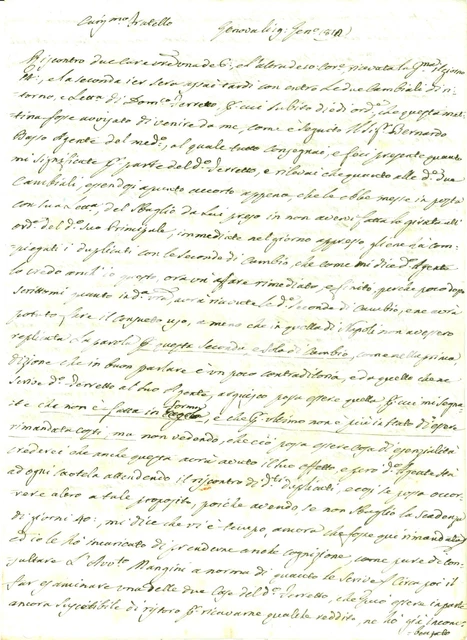 Cariss.mo Fratello Genova li 19 Gen.o
Riscontro due care v.re una de 6, e l'altra de 10 cor.e ricevuta la p.ma il giorno
14, e la seconda ier sera assai tardi con entro le due Cambiali di ri-
torno, e lett.a di Dom.co Ferretto, p. cui subito diedi ord.e che questa mat-
tina fosse avvisato di venire da me, come è seguito Bernardo
Basso Agente del med.o, al quale tutto consegnai, e feci presente quanto
mi significate p. parte del d.o Ferretto, e rilevai che quanto alle d.e due
Cambiali, essendosi appunto accorto appena, che le ebbe messe in posta
con sua lett.a, del sbaglio da lui preso in non avervi fatta la girata all'
ord.e del d.o suo Principale, immediate nel giorno appresso gliene ha com-
piegati i duplicati con le seconde di Cambio, che come mi dice d.o Agente
lo credo anch'io questo, ora un affare rimediato, e finito, perchè poco dopo
scrittomi quanto in d.a avrà ricevute le d.e seconde di Cambio, e ne avrà
potuto fare il consueto uso, a meno che in quella di Napoli non avessero
replicata la parola p. questa seconda, e sola di Cambio, come nella prima
dizione che in buon parlare è un poco contraditoria, e da quello che ne
scrive d.o Ferretto al suo Agente, acquisto possa essere quella p. cui mi segna-
te che non è fatta in forma, e che p. ultimo non è più in stato di essere
rimandata costì, ma non vedendo, che ciò possa essere cosa di essenzialità
crederei che anche questa avrà avuto il suo effetto, e però d.o Agente sta
ad ogni cautela attendendo il riscontro di d.ti duplicati, e così se possa occor-
rere altro a tale proposito, poichè avendo se non sbaglio la scadenza
di giorni 40, mi dice che vi è tempo ancora che fosse qui rimandata,
ed io le ho incaricato di prenderne anche cognizione come pure di con-
sultare L'Avv.to Mangini a norma di quanto le scrive. Circa poi il
far esaminare una delle due Case del d.o Ferretto, che può essere in parte
ancora suscettibile di ristoro p. ricavarne qualche reddito, ne ho già